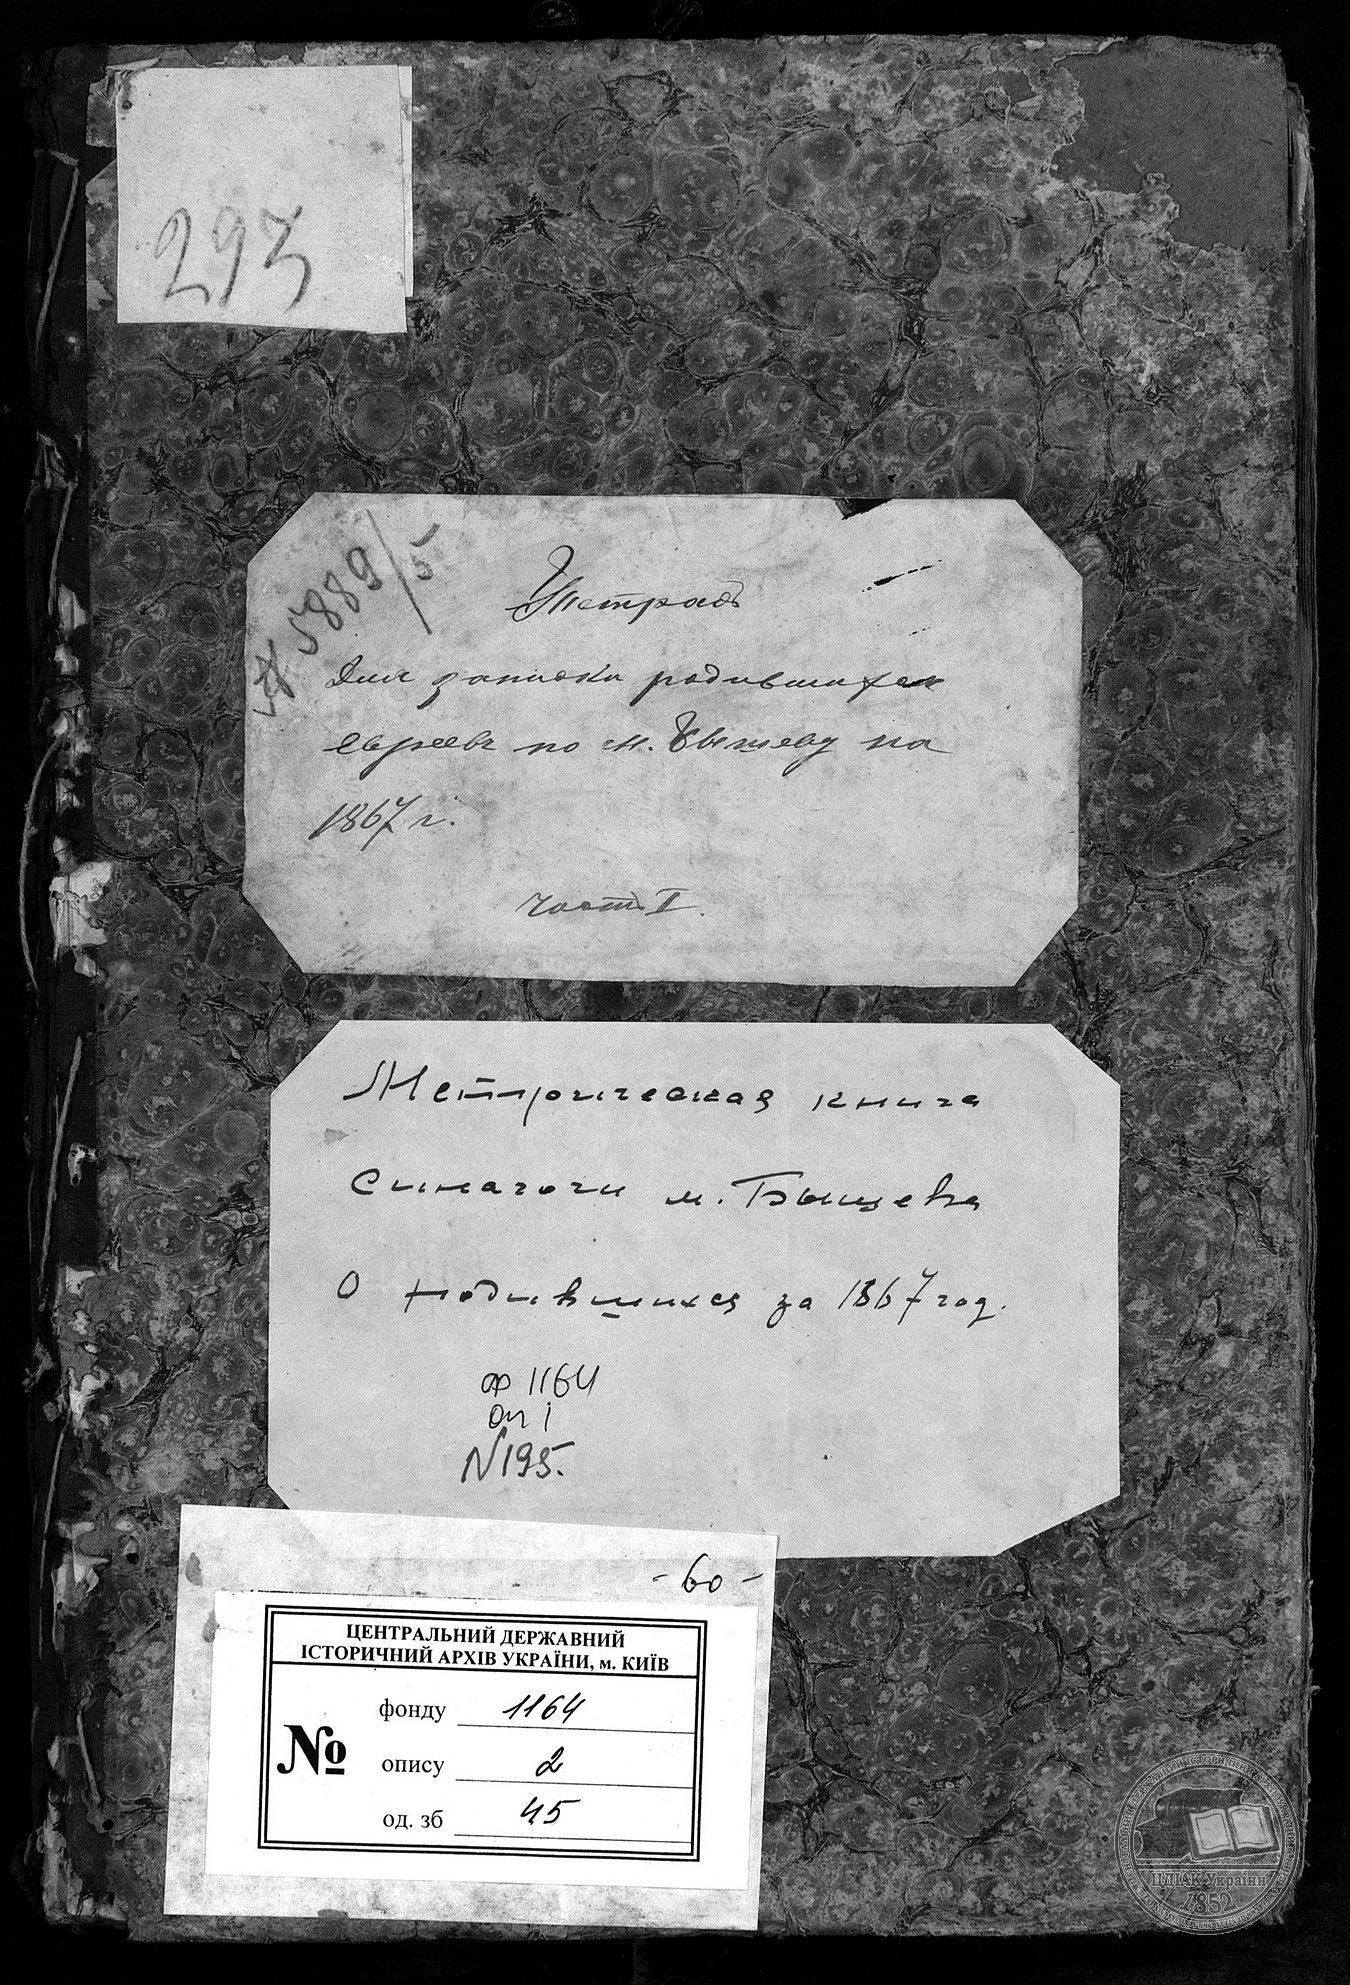 293
№ 5889/5
Тетрадь
для записки родившихся
евреевъ по м. Бышеву на
1867 г.
Часть I.
Метрическая книга
Синагоги м. Бышева
О родившихся за 1867 год.
ф 1164
оп 1
N 195.
- 60 -
ЦЕНТРАЛЬНИЙ ДЕРЖАВНИЙ
ІСТОРИЧНИЙ АРХІВ УКРАЇНИ, м. КИЇВ
№
фонду 1164
опису 2
од. зб 45
ЦДІАК України
1852